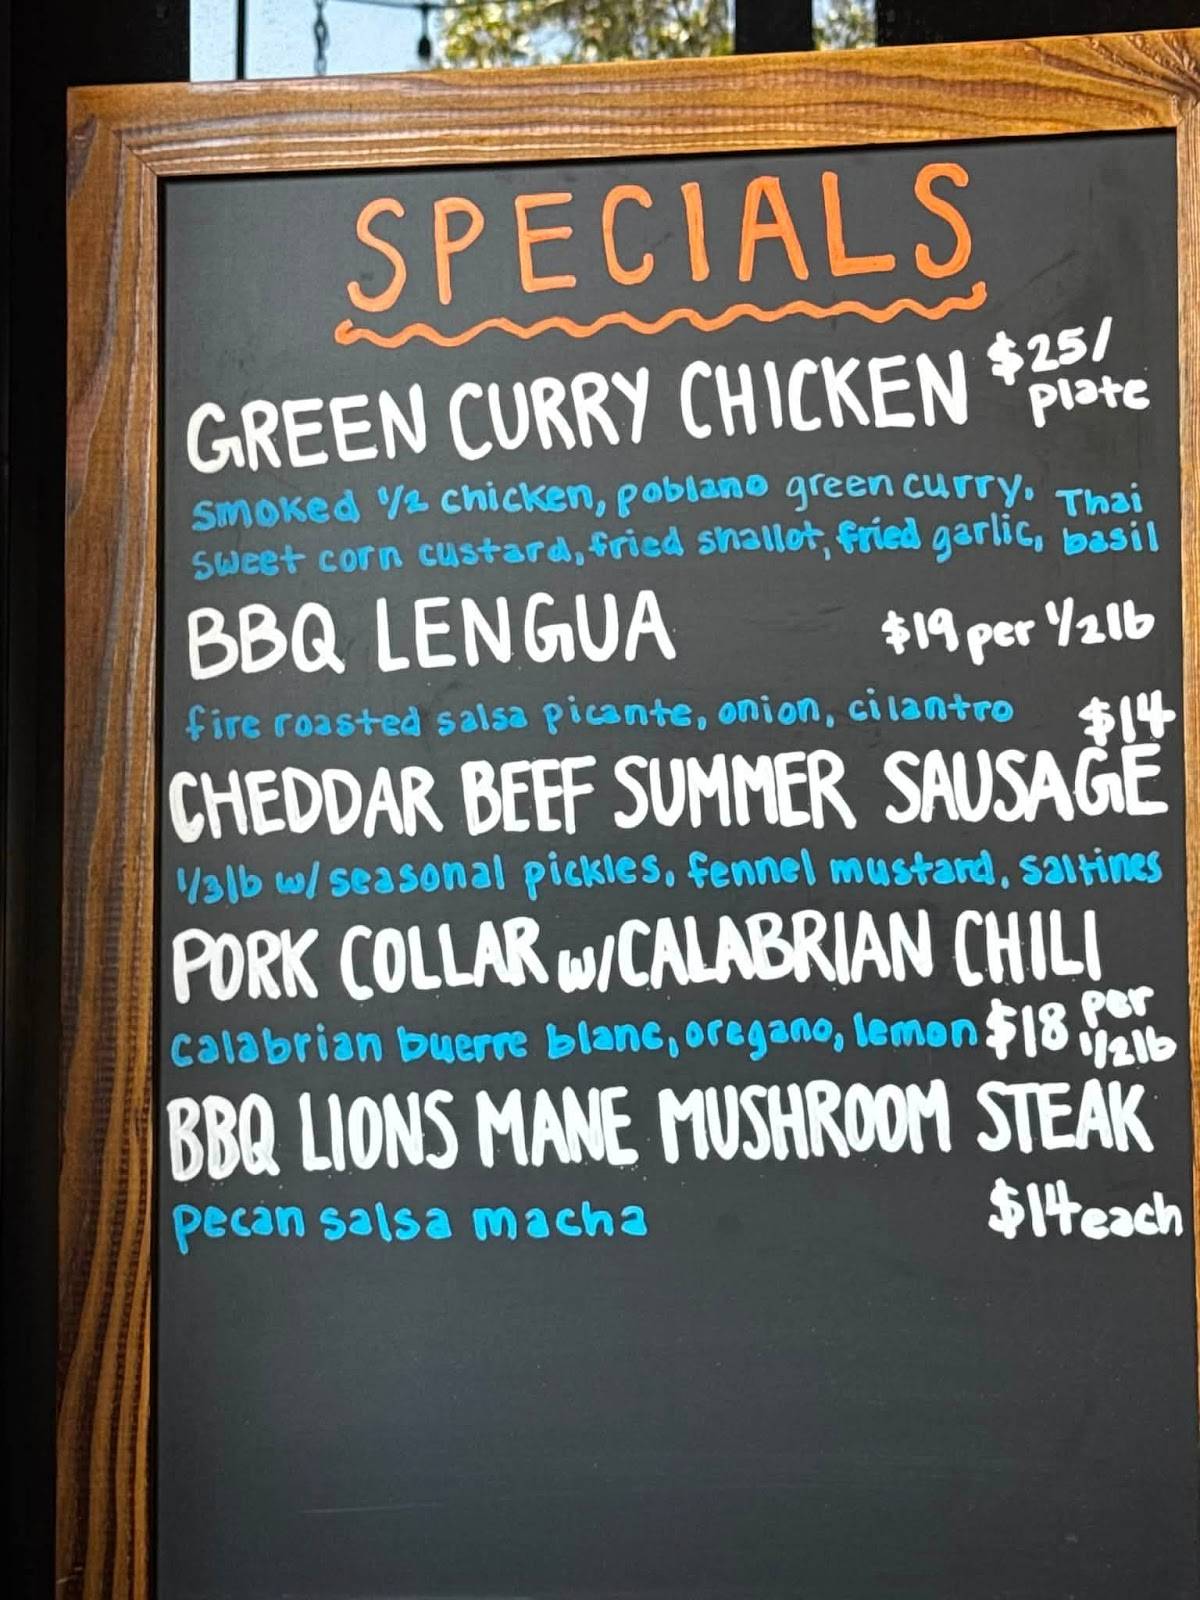 SPECIALS
GREEN CURRY CHICKEN $25/plate
smoked 1/2 chicken, poblano green curry,
sweet corn custard, fried shallot, fried garlic, Thai basil
BBQ LENGUA $19 per 1/2 lb
fire roasted salsa picante, onion, cilantro
CHEDDAR BEEF SUMMER SAUSAGE $14
1/3lb w/ seasonal pickles, fennel mustard, saltines
PORK COLLAR w/CALABRIAN CHILI
calabrian buerre blanc, oregano, lemon $18 per 1/2lb
BBQ LIONS MANE MUSHROOM STEAK
pecan salsa macha $14 each